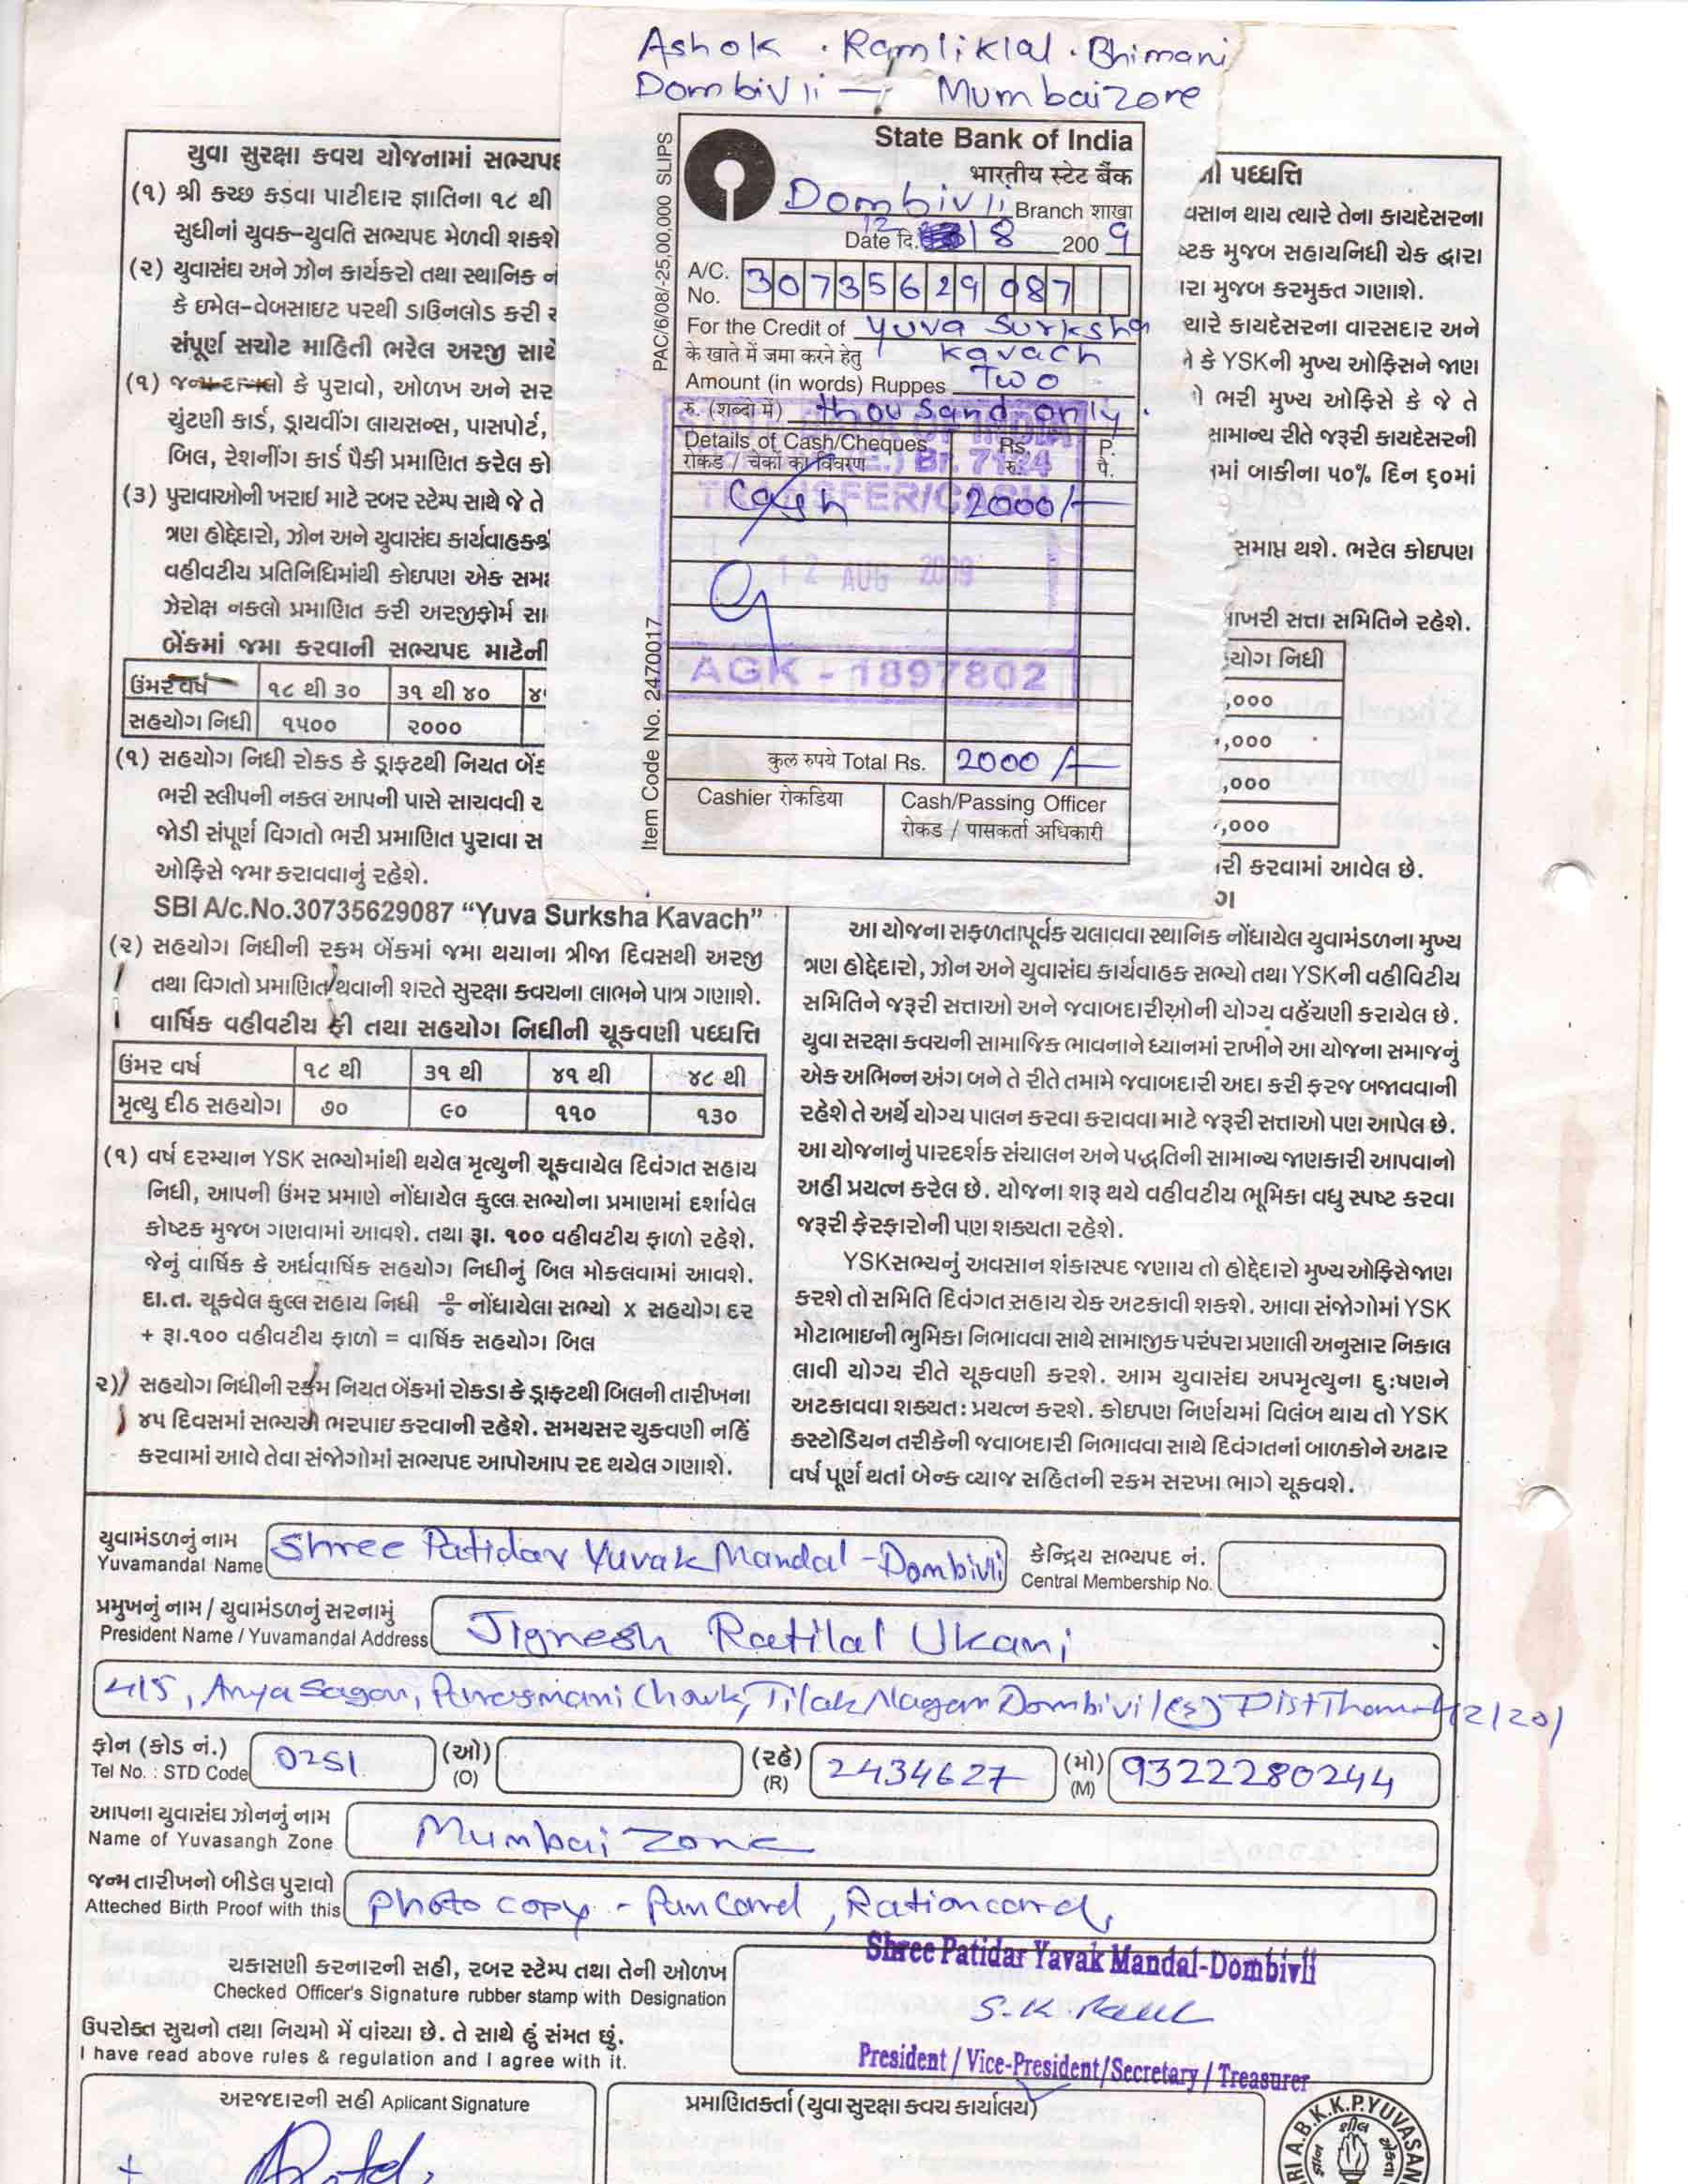 Ashok . Ramliklal . Bhimani
Dombivli — Mumbaizone
State Bank of India
भारतीय स्टेट बैंक
Dombivli Branch शाखा
Date दि. 12 8 200 9
A/C. No. 30735629087
For the Credit of Yuva Surksha
के खाते में जमा करने हेतु Kavach
Amount (in words) Ruppes Two
रु. (शब्दो में) thousand only.
Details of Cash/Cheques Rs. P.
रोकड / चेकों का विवरण रु. पै.
Cash 2000/-
TRANSFER/CASH
12 AUG 2009
AGK - 1897802
कुल रुपये Total Rs. 2000/-
Cashier रोकडिया
Cash/Passing Officer
रोकड / पासकर्ता अधिकारी
PAC/6/08/-25,00,000 SLIPS
Item Code No. 2470017
યુવા સુરક્ષા કવચ યોજનામાં સભ્યપદ
(૧) શ્રી કચ્છ કડવા પાટીદાર જ્ઞાતિના ૧૮ થી
સુધીનાં યુવક-યુવતિ સભ્યપદ મેળવી શકશે
(૨) યુવાસંઘ અને ઝોન કાર્યકરો તથા સ્થાનિક
કે ઇમેલ-વેબસાઇટ પરથી ડાઉનલોડ કરી
સંપૂર્ણ સચોટ માહિતી ભરેલ અરજી સાથે
(૧) જન્મ દાખલો કે પુરાવો, ઓળખ અને સર
ચુંટણી કાર્ડ, ડ્રાયવીંગ લાયસન્સ, પાસપોર્ટ,
બિલ, રેશનીંગ કાર્ડ પૈકી પ્રમાણિત કરેલ કો
(૩) પુરાવાઓની ખરાઇ માટે રબર સ્ટેમ્પ સાથે જે તે
ત્રણ હોદ્દેદારો, ઝોન અને યુવાસંઘ કાર્યવાહક
વહીવટીય પ્રતિનિધિમાંથી કોઇપણ એક
ઝેરોક્ષ નકલો પ્રમાણિત કરી અરજીફોર્મ સા
બેંકમાં જમા કરવાની સભ્યપદ માટેની
ઉંમર વર્ષ ૧૮ થી ૩૦ ૩૧ થી ૪૦
સહયોગ નિધી ૧૫૦૦ ૨૦૦૦
(૧) સહયોગ નિધી રોકડ કે ડ્રાફટથી નિયત બેંક
ભરી સ્લીપની નકલ આપની પાસે સાચવવી
જોડી સંપૂર્ણ વિગતો ભરી પ્રમાણિત પુરાવા સ
ઓફિસે જમા કરાવવાનું રહેશે.
SBI A/c.No.30735629087 “Yuva Surksha Kavach”
(૨) સહયોગ નિધીની રકમ બેંકમાં જમા થયાના ત્રીજા દિવસથી અરજી
તથા વિગતો પ્રમાણિત થવાની શરતે સુરક્ષા કવચના લાભને પાત્ર ગણાશે.
વાર્ષિક વહીવટીય ફી તથા સહયોગ નિધીની ચૂકવણી પધ્ધતિ
ઉંમર વર્ષ ૧૮ થી ૩૧ થી ૪૧ થી ૪૮ થી
મૃત્યુ દીઠ સહયોગ ૭૦ ૯૦ ૧૧૦ ૧૩૦
(૧) વર્ષ દરમ્યાન YSK સભ્યોમાંથી થયેલ મૃત્યુની ચૂકવાયેલ દિવંગત સહાય
નિધી, આપની ઉંમર પ્રમાણે નોંધાયેલ કુલ્લ સભ્યોના પ્રમાણમાં દર્શાવેલ
કોષ્ટક મુજબ ગણવામાં આવશે. તથા રૂા. ૧૦૦ વહીવટીય ફાળો રહેશે.
જેનું વાર્ષિક કે અર્ધવાર્ષિક સહયોગ નિધીનું બિલ મોકલવામાં આવશે.
દા.ત. ચૂકવેલ કુલ્લ સહાય નિધી ÷ નોંધાયેલા સભ્યો x સહયોગ દર
+ રૂા.૧૦૦ વહીવટીય ફાળો = વાર્ષિક સહયોગ બિલ
૨) સહયોગ નિધીની રકમ નિયત બેંકમાં રોકડા કે ડ્રાફટથી બિલની તારીખના
૪૫ દિવસમાં સભ્યએ ભરપાઇ કરવાની રહેશે. સમયસર ચુકવણી નહિં
કરવામાં આવે તેવા સંજોગોમાં સભ્યપદ આપોઆપ રદ થયેલ ગણાશે.
ની પધ્ધતિ
વસાન થાય ત્યારે તેના કાયદેસરના
ષ્ટક મુજબ સહાયનિધી ચેક દ્વારા
ારા મુજબ કરમુકત ગણાશે.
થારે કાયદેસરના વારસદાર અને
કે YSKની મુખ્ય ઓફિસને જાણ
ભરી મુખ્ય ઓફિસે કે જે તે
સામાન્ય રીતે જરૂરી કાયદેસરની
માં બાકીના ૫૦% દિન ૬૦માં
સમાપ્ત થશે. ભરેલ કોઇપણ
આખરી સત્તા સમિતિને રહેશે.
યોગ નિધી
,૦૦૦
,૦૦૦
,૦૦૦
,૦૦૦
રી કરવામાં આવેલ છે.
આ યોજના સફળતાપૂર્વક ચલાવવા સ્થાનિક નોંધાયેલ યુવામંડળના મુખ્ય
ત્રણ હોદ્દેદારો, ઝોન અને યુવાસંઘ કાર્યવાહક સભ્યો તથા YSKની વહીવિટીય
સમિતિને જરૂરી સત્તાઓ અને જવાબદારીઓની યોગ્ય વહેંચણી કરાયેલ છે.
યુવા સરક્ષા કવચની સામાજિક ભાવનાને ધ્યાનમાં રાખીને આ યોજના સમાજનું
એક અભિન્ન અંગ બને તે રીતે તમામે જવાબદારી અદા કરી ફરજ બજાવવાની
રહેશે તે અર્થે યોગ્ય પાલન કરવા કરાવવા માટે જરૂરી સત્તાઓ પણ આપેલ છે.
આ યોજનાનું પારદર્શક સંચાલન અને પદ્ધતિની સામાન્ય જાણકારી આપવાનો
અહીં પ્રયત્ન કરેલ છે. યોજના શરૂ થયે વહીવટીય ભૂમિકા વધુ સ્પષ્ટ કરવા
જરૂરી ફેરફારોની પણ શક્યતા રહેશે.
YSKસભ્યનું અવસાન શંકાસ્પદ જણાય તો હોદ્દેદારો મુખ્ય ઓફિસે જાણ
કરશે તો સમિતિ દિવંગત સહાય ચેક અટકાવી શકશે. આવા સંજોગોમાં YSK
મોટાભાઇની ભુમિકા નિભાવવા સાથે સામાજીક પરંપરા પ્રણાલી અનુસાર નિકાલ
લાવી યોગ્ય રીતે ચૂકવણી કરશે. આમ યુવાસંઘ અપમૃત્યુના દુઃષણને
અટકાવવા શક્યતઃ પ્રયત્ન કરશે. કોઇપણ નિર્ણયમાં વિલંબ થાય તો YSK
કસ્ટોડિયન તરીકેની જવાબદારી નિભાવવા સાથે દિવંગતનાં બાળકોને અઢાર
વર્ષ પૂર્ણ થતાં બેન્ક વ્યાજ સહિતની રકમ સરખા ભાગે ચૂકવશે.
યુવામંડળનું નામ
Yuvamandal Name Shree Patidar Yuvak Mandal - Dombivli
કેન્દ્રિય સભ્યપદ નં.
Central Membership No.
પ્રમુખનું નામ / યુવામંડળનું સરનામું
President Name / Yuvamandal Address Jignesh Ratilal Ukani
415, Arya Sagar, Parasmani Chowk, Tilak Nagar Dombivli (E) Dist Thane 421201
ફોન (કોડ નં.) (ઓ) (રહે) (મો)
Tel No. : STD Code 0251 (O) (R) 2434627 (M) 9322280244
આપના યુવાસંઘ ઝોનનું નામ
Name of Yuvasangh Zone Mumbai Zone
જન્મ તારીખનો બીડેલ પુરાવો
Atteched Birth Proof with this photo copy - Pan Card, Rationcard,
ચકાસણી કરનારની સહી, રબર સ્ટેમ્પ તથા તેની ઓળખ
Checked Officer's Signature rubber stamp with Designation
Shree Patidar Yavak Mandal-Dombivli
President / Vice-President/Secretary / Treasurer
ઉપરોક્ત સુચનો તથા નિયમો મેં વાંચ્યા છે. તે સાથે હું સંમત છું.
I have read above rules & regulation and I agree with it.
અરજદારની સહી Aplicant Signature
પ્રમાણિતકર્તા (યુવા સુરક્ષા કવચ કાર્યાલય)